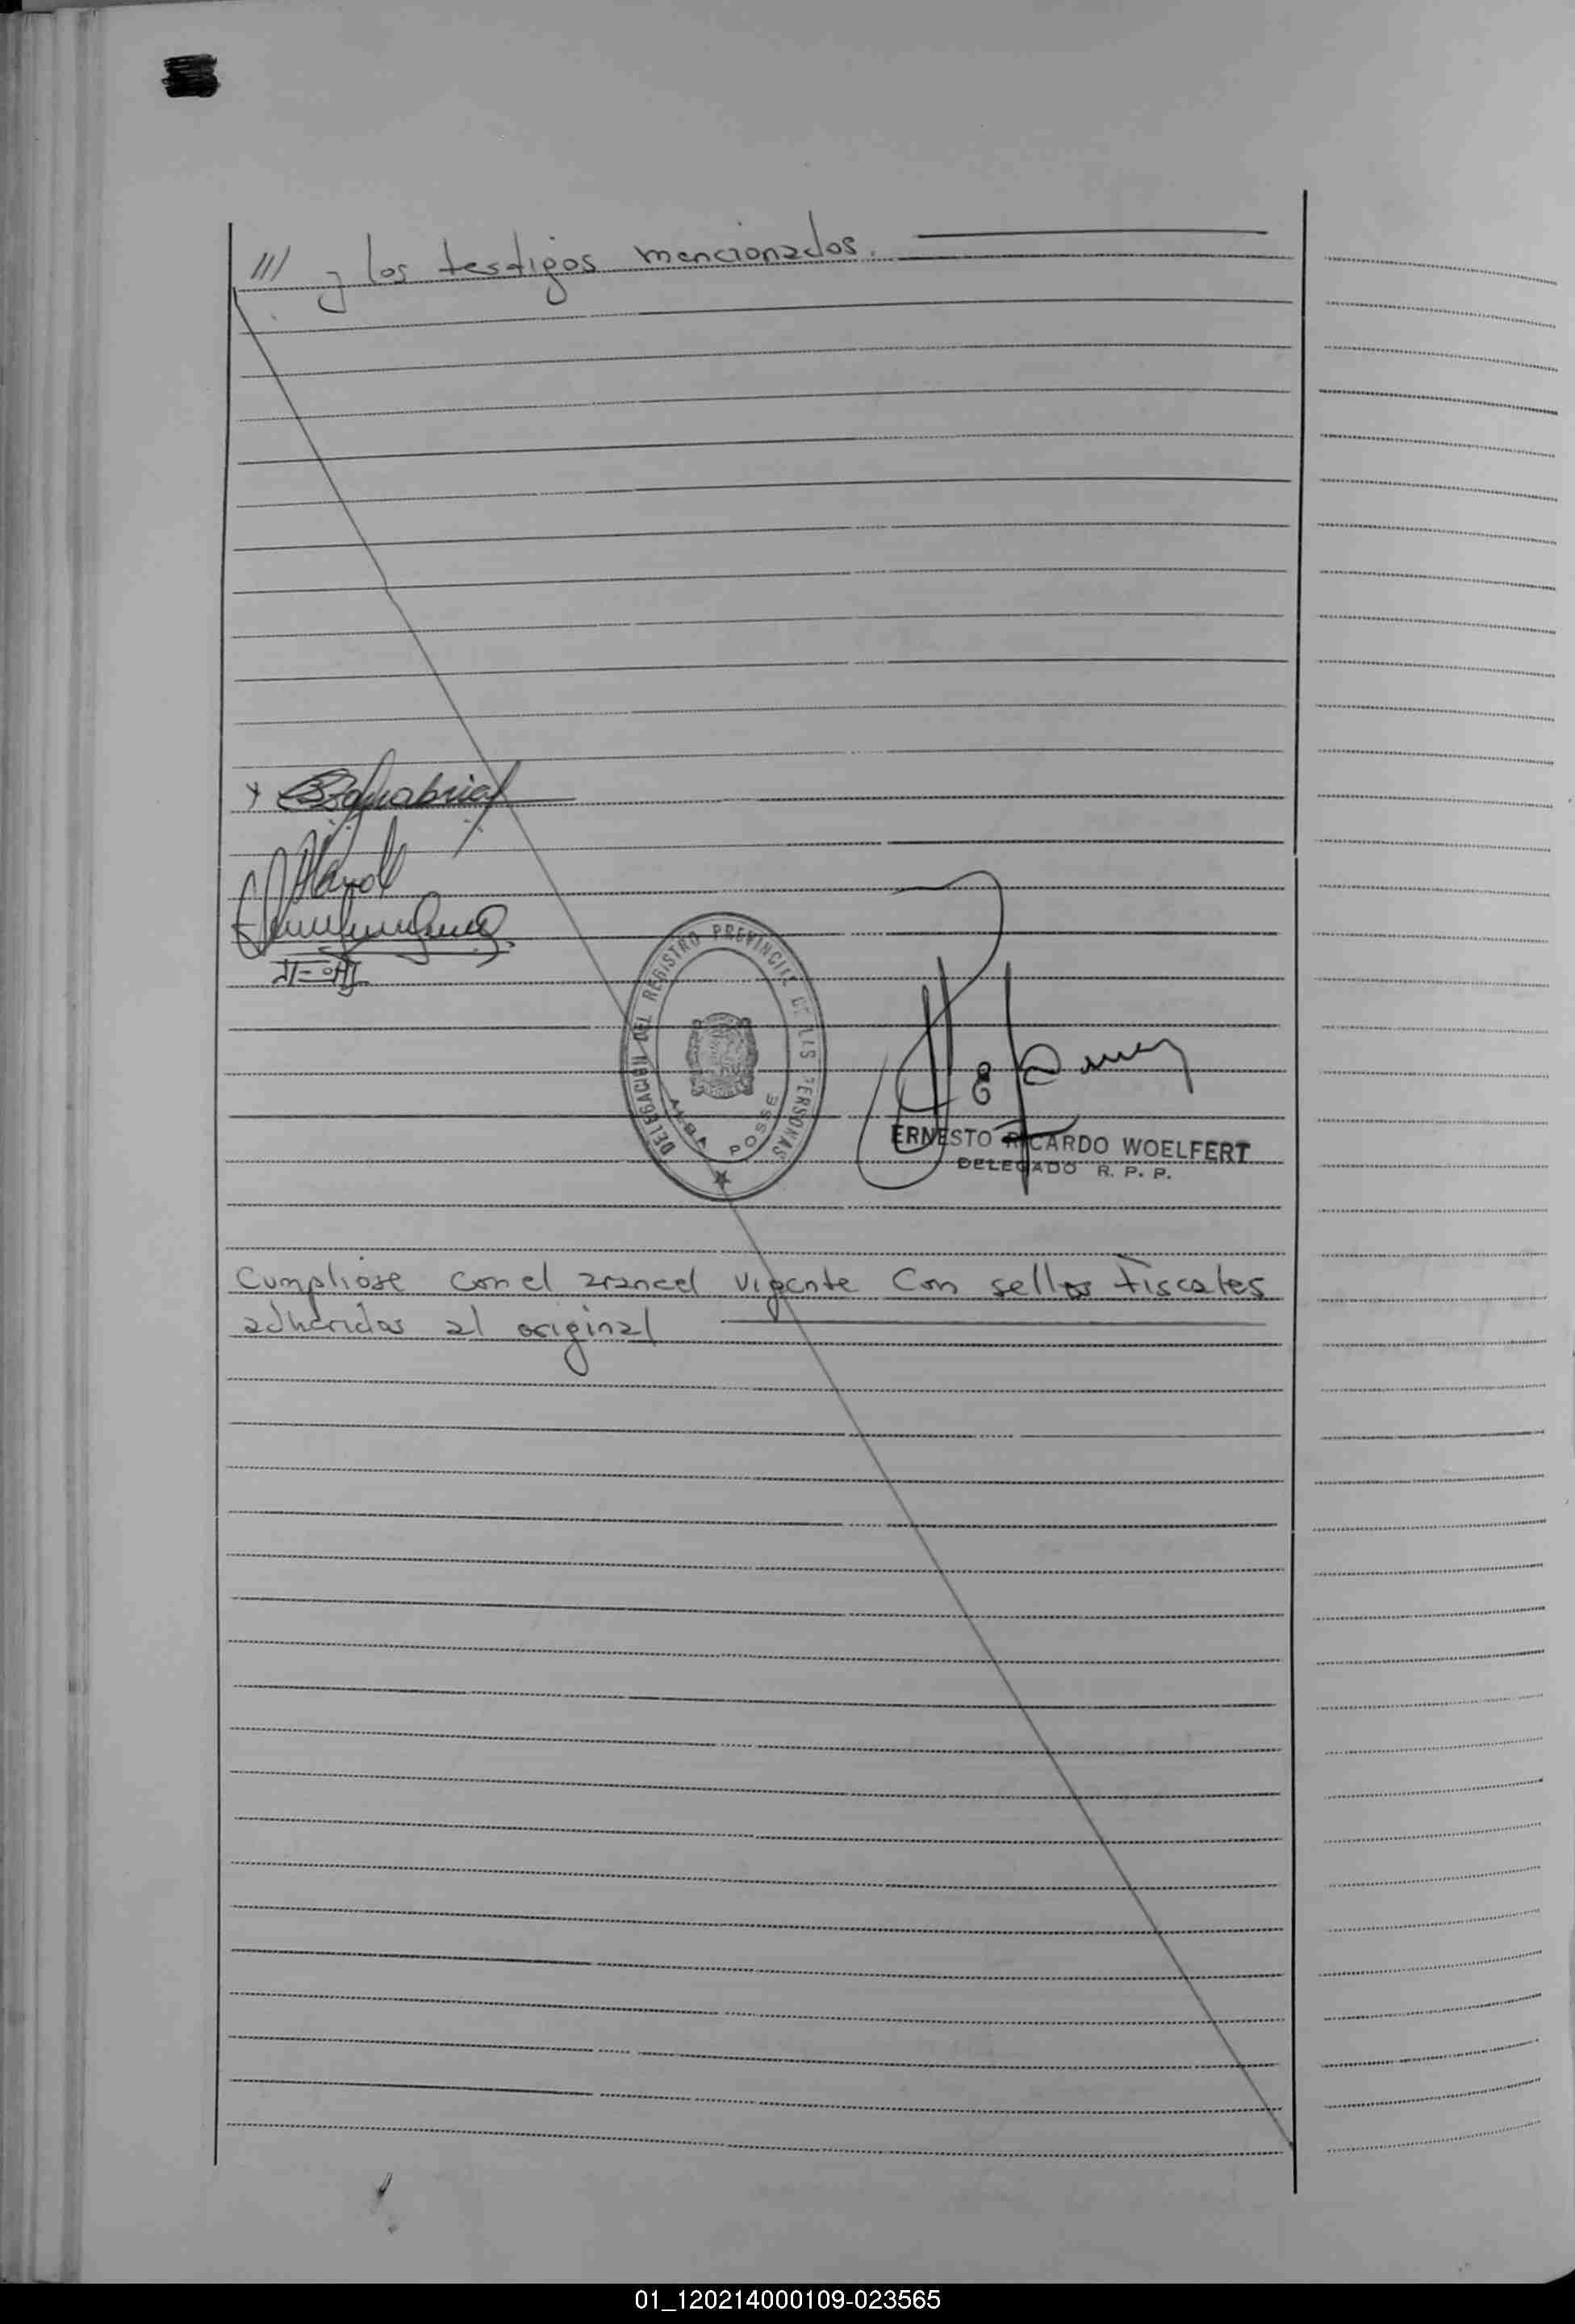 /// y los testigos mencionados.
DELEGACION DEL REGISTRO PROVINCIAL DE LAS PERSONAS
ALBA POSSE
ERNESTO RICARDO WOELFERT
DELEGADO R. P. P.
Cumpliose con el arancel vigente con sellos fiscales
adheridos al original
01_120214000109-023565